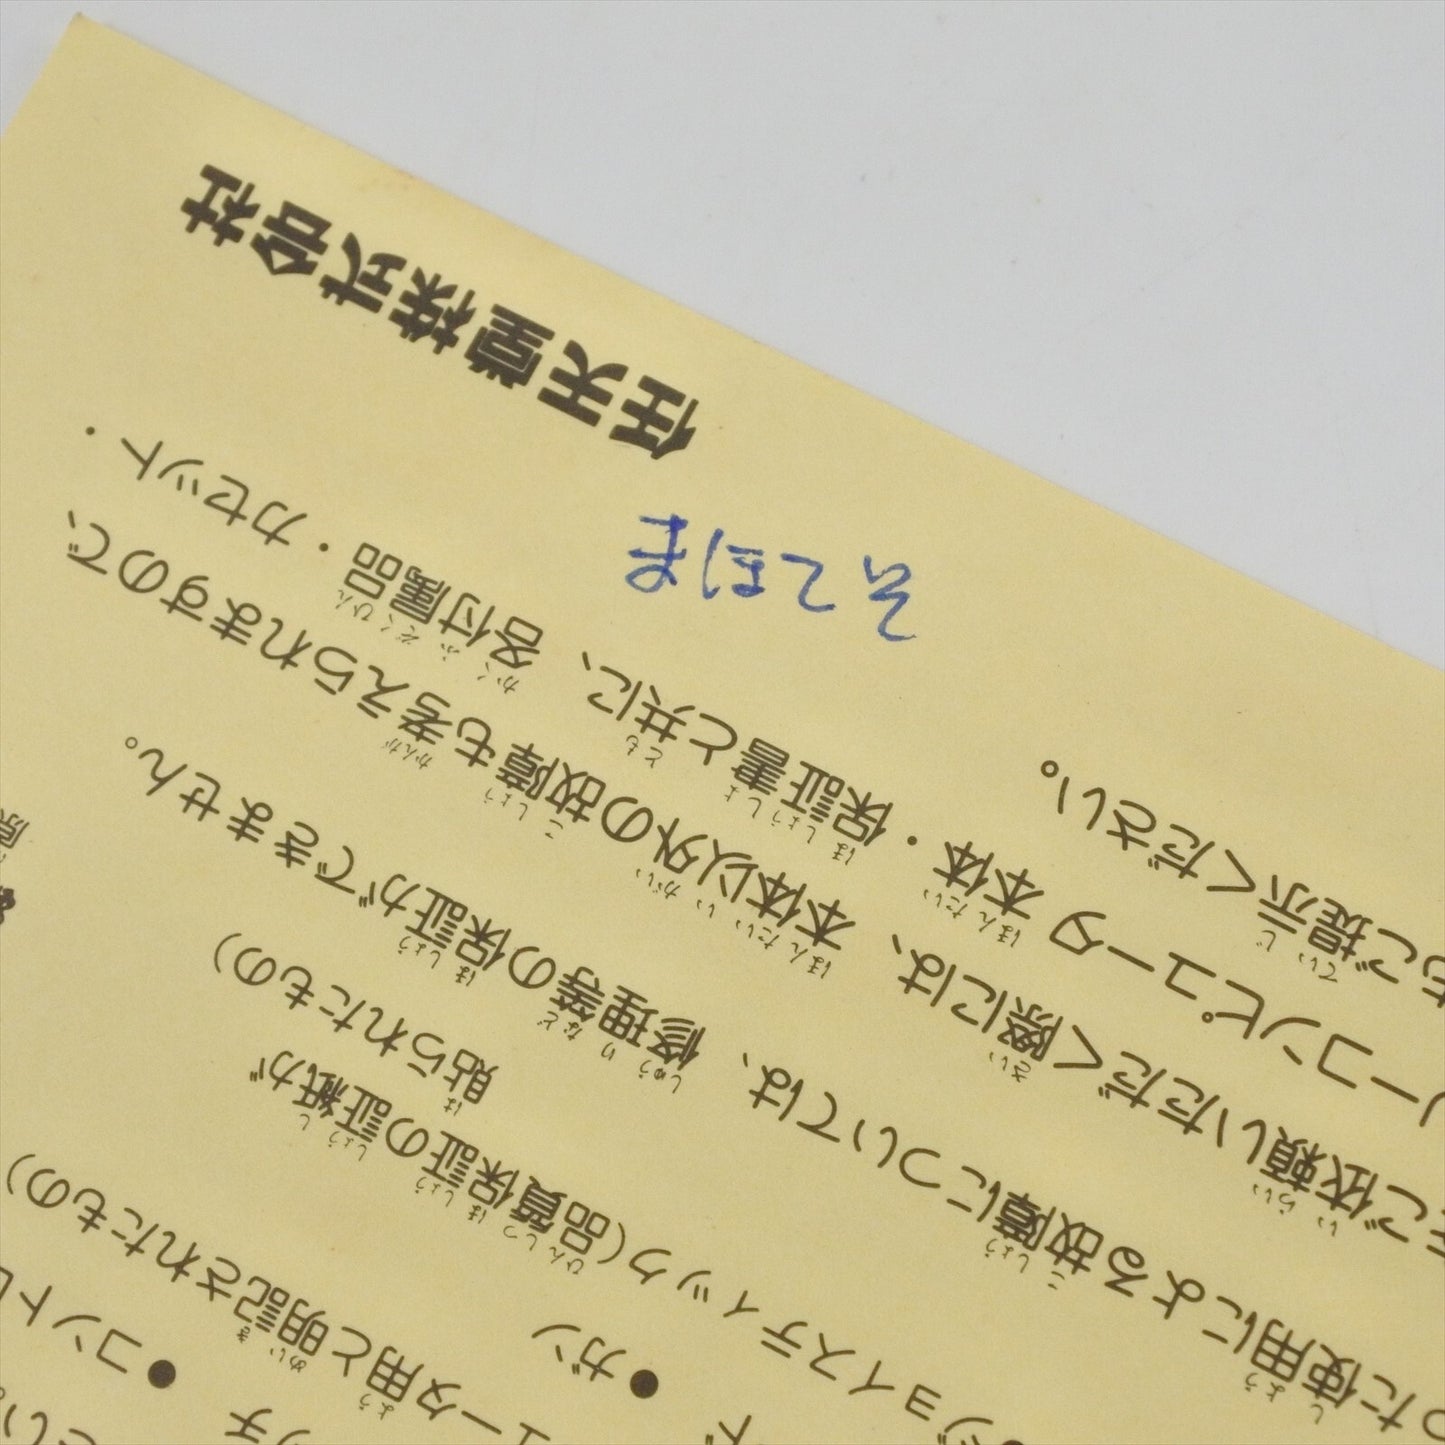 さい。
ッチ ●コントロ
ュータ用と明記されたもの)
ド ●ガン
ジョイスティック(品質保証の証紙が
貼られたもの)
った使用による故障については、修理等の保証ができません。
をご依頼いただく際には、本体以外の故障も考えられますので、
リーコンピュータ本体・保証書と共に、各付属品・カセット・
もご提示ください。
任天堂株式会社